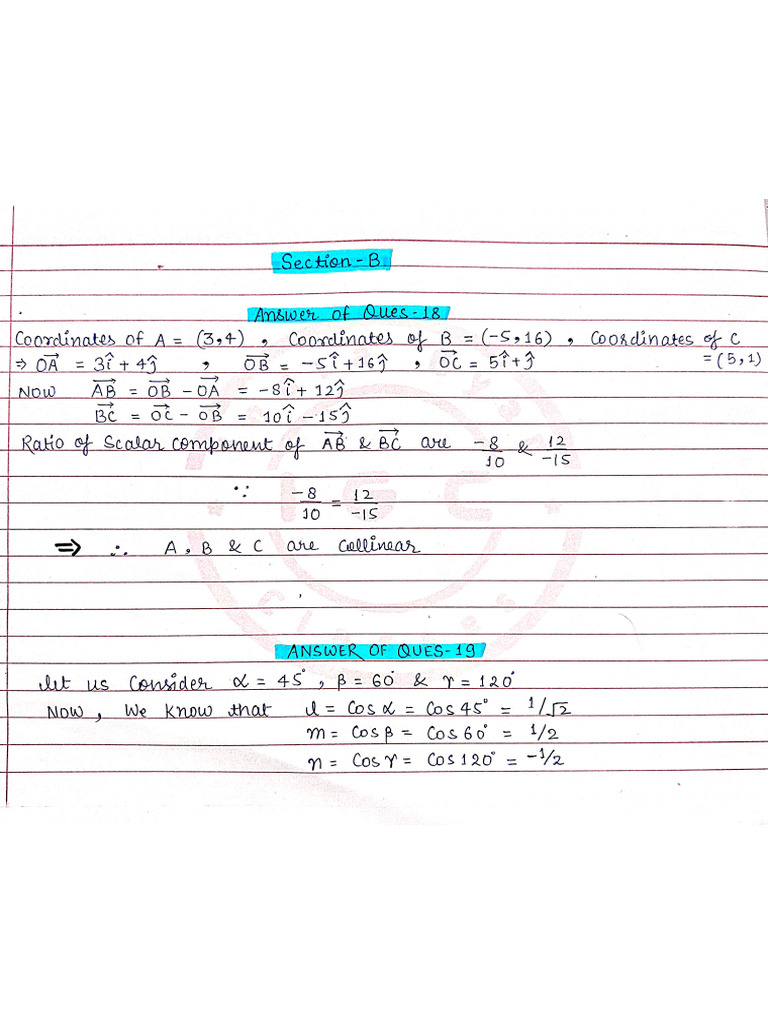 Section-B
Answer of Ques-18
Coordinates of A = (3,4) , Coordinates of B = (-5,16) , Coordinates of C = (5,1)
⇒ OA⃗ = 3î + 4ĵ , OB⃗ = -5î + 16ĵ , OC⃗ = 5î + ĵ
Now AB⃗ = OB⃗ - OA⃗ = -8î + 12ĵ
BC⃗ = OC⃗ - OB⃗ = 10î - 15ĵ
Ratio of Scalar Component of AB⃗ & BC⃗ are -8/10 & 12/-15
∵ -8/10 = 12/-15
⇒ ∴ A, B & C are Collinear
ANSWER OF QUES-19
let us Consider α = 45°, β = 60° & γ = 120°
Now, We Know that l = Cos α = Cos 45° = 1/√2
m = Cos β = Cos 60° = 1/2
n = Cos γ = Cos 120° = -1/2